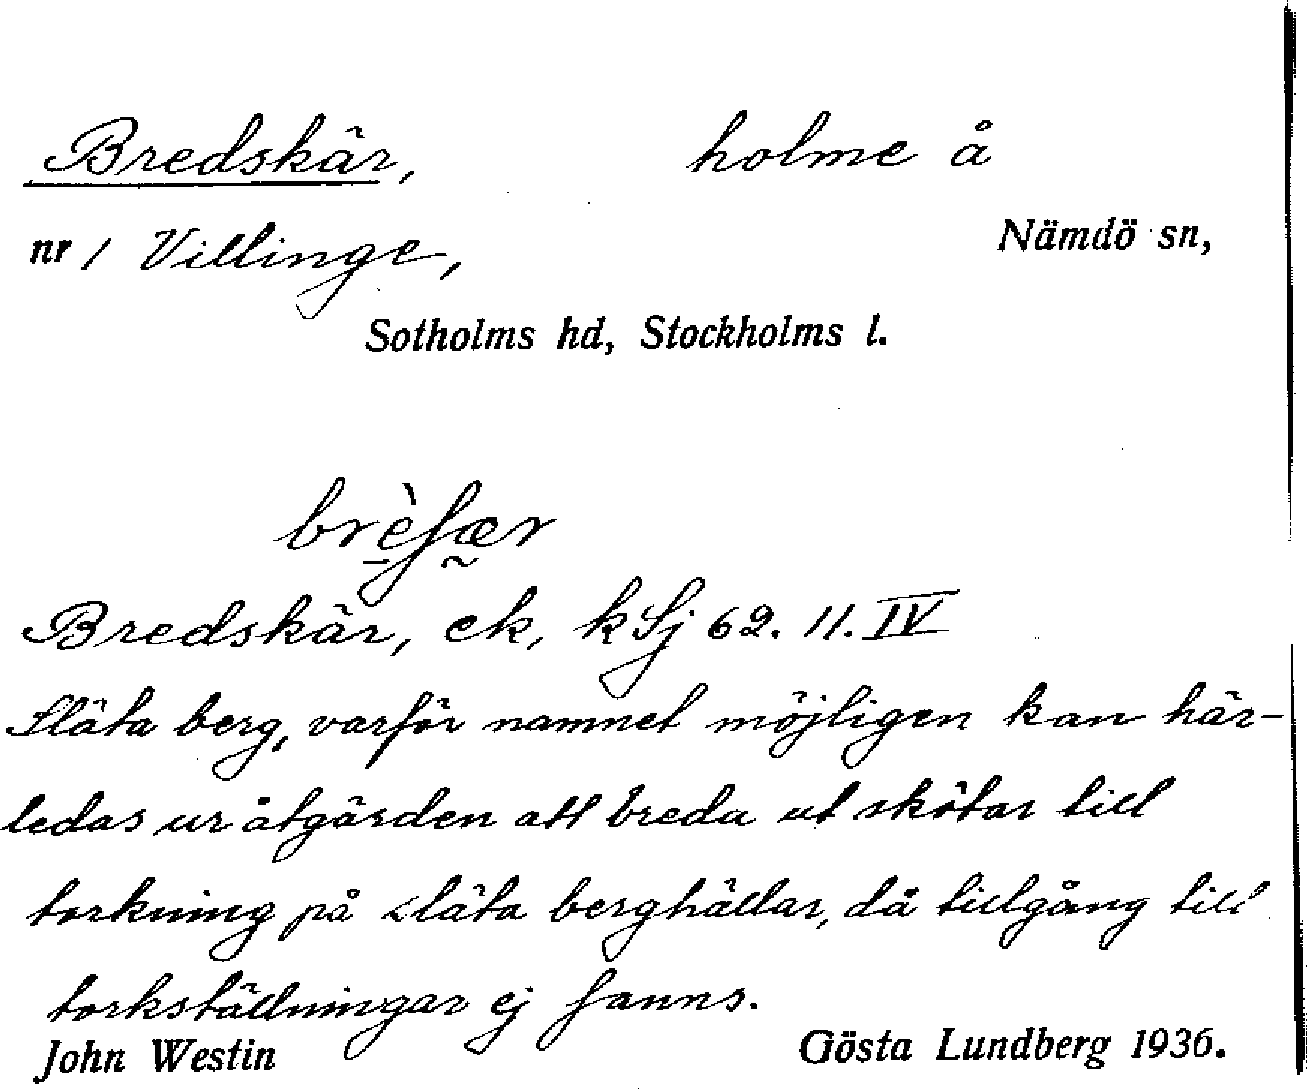 Bredskär, holme å
nr 1 Villinge, Nämdö sn,
Sotholms hd, Stockholms l.
brèʃær
Bredskär, ek, kSj 62. 11. IV
Släta berg, varför namnet möjligen kan här-
ledas ur åtgärden att breda ut skötar till
torkning på släta berghällar, då tillgång till
torkställningar ej fanns.
John Westin Gösta Lundberg 1936.